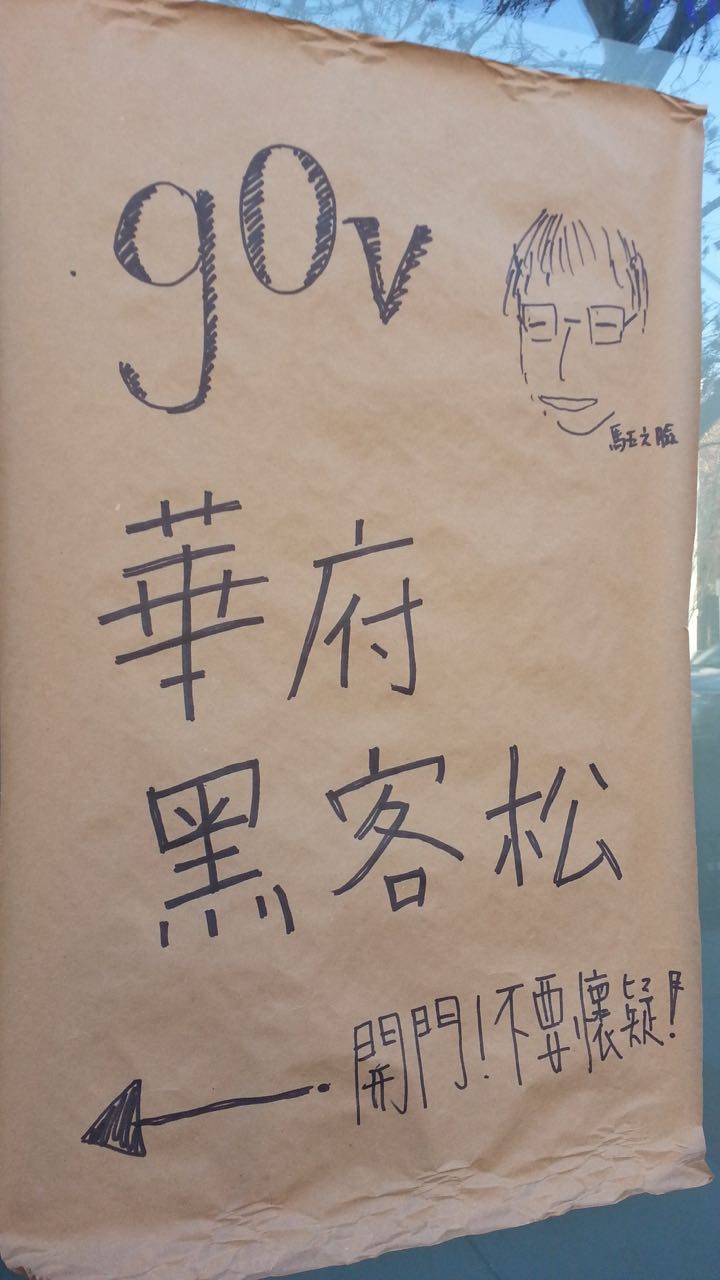 gov
馬王之臉
華府
黑客松
開門!不要懷疑!